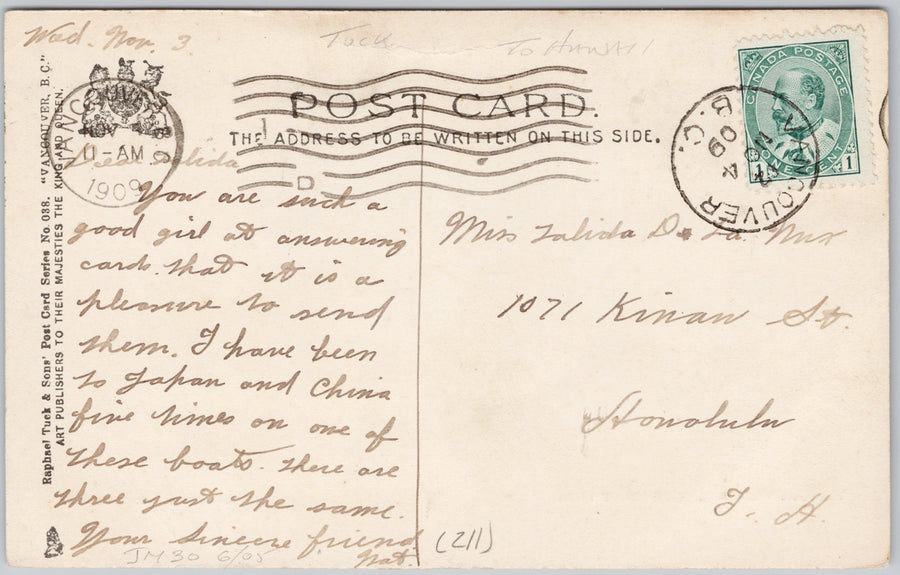 Wed. Nov. 3
Tuck
To Hawaii
POST CARD.
THE ADDRESS TO BE WRITTEN ON THIS SIDE.
Raphael Tuck & Sons' Post Card Series No. 038. "VANCOUVER, B.C."
ART PUBLISHERS TO THEIR MAJESTIES THE KING AND QUEEN.
NOV 4
11-AM
1909
1
D
CANADA POSTAGE
ONE CENT
1 1
VANCOUVER
B.C.
NO 4
09
Dear Zalida
You are such a
good girl at answering
cards that it is a
pleasure to send
them. I have been
to Japan and China
five times on one of
these boats. There are
three just the same.
Your sincere friend
Nat.
Miss Zalida De La Nux
1071 Kinau St.
Honolulu
T. H.
(211)
JM30 6/05